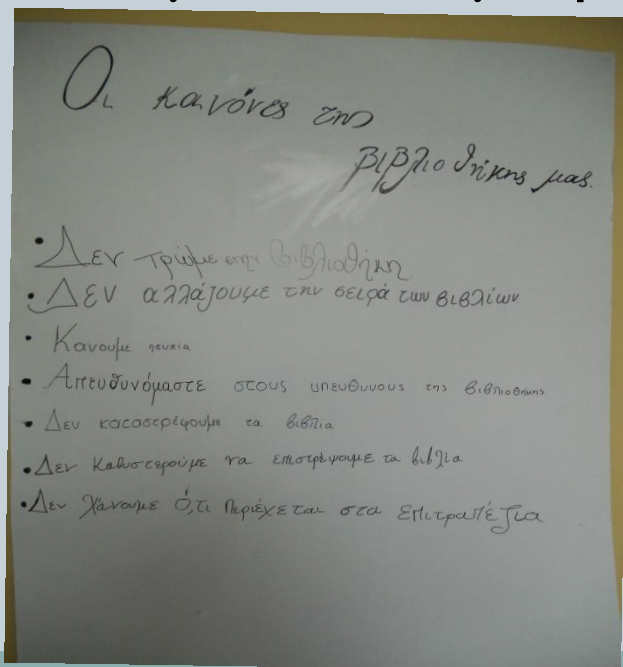 Οι κανόνες της
βιβλιοθήκης μας.
• Δεν τρώμε στην βιβλιοθήκη
• Δεν αλλάζουμε την σειρά των βιβλίων
• Κανουμε ησυχια
• Απευθυνόμαστε στους υπευθυνους της βιβλιοθήκης
• Δεν καταστρέφουμε τα βιβλια
• Δεν καθυστερούμε να επιστρέψουμε τα βιβλία
• Δεν χάνουμε ό,τι περιέχεται στα επιτραπέζια